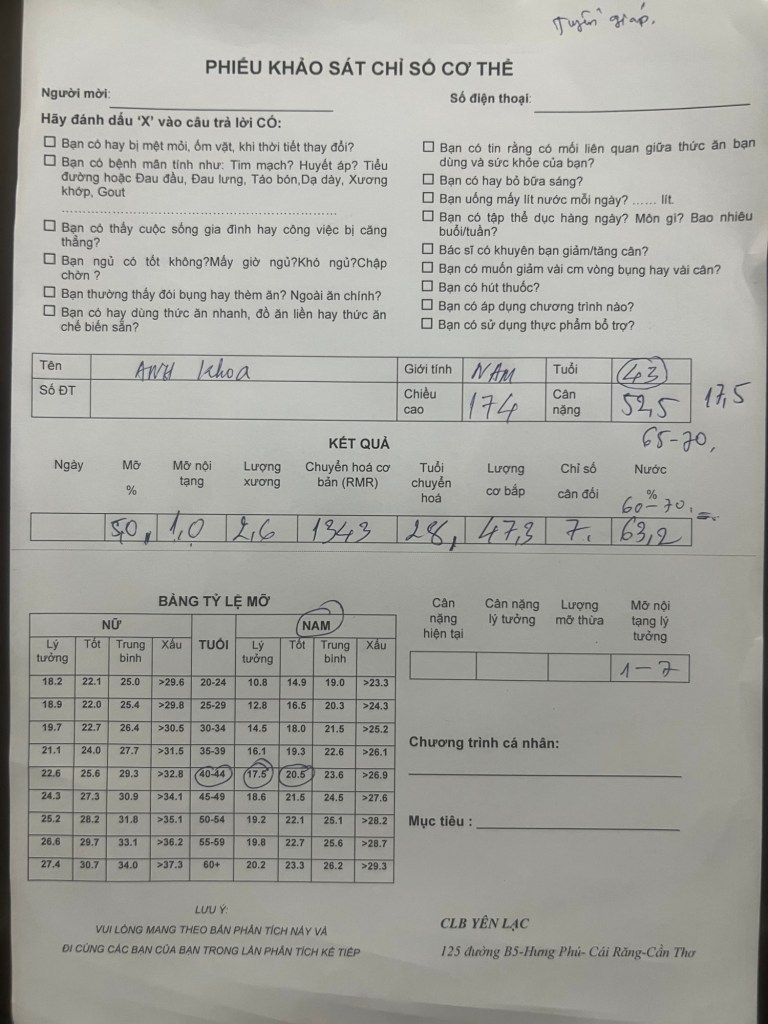 tuyến giáp.
PHIẾU KHẢO SÁT CHỈ SỐ CƠ THỂ
Người mời:
Số điện thoại:
Hãy đánh dấu ‘X’ vào câu trả lời CÓ:
Bạn có hay bị mệt mỏi, ốm vặt, khi thời tiết thay đổi?
Bạn có bệnh mãn tính như: Tim mạch? Huyết áp? Tiểu
đường hoặc Đau đầu, Đau lưng, Táo bón,Dạ dày, Xương
khớp, Gout
Bạn có thấy cuộc sống gia đình hay công việc bị căng
thẳng?
Bạn ngủ có tốt không?Mấy giờ ngủ?Khó ngủ?Chập
chờn ?
Bạn thường thấy đói bụng hay thèm ăn? Ngoài ăn chính?
Bạn có hay dùng thức ăn nhanh, đồ ăn liền hay thức ăn
chế biến sẵn?
Bạn có tin rằng có mối liên quan giữa thức ăn bạn
dùng và sức khỏe của bạn?
Bạn có hay bỏ bữa sáng?
Bạn uống mấy lít nước mỗi ngày? ...... lít.
Bạn có tập thể dục hàng ngày? Môn gì? Bao nhiêu
buổi/tuần?
Bác sĩ có khuyên bạn giảm/tăng cân?
Bạn có muốn giảm vài cm vòng bụng hay vài cân?
Bạn có hút thuốc?
Bạn có áp dụng chương trình nào?
Bạn có sử dụng thực phẩm bổ trợ?
Tên ANH Khoa Giới tính NAM Tuổi 43
Số ĐT Chiều cao 174 Cân nặng 52,5 17,5
65-70,
KẾT QUẢ
Ngày Mỡ % Mỡ nội tạng Lượng xương Chuyển hoá cơ bản (RMR) Tuổi chuyển hoá Lượng cơ bắp Chỉ số cân đối Nước %
60-70.
5,0 1,0 2,6 1343 28, 47,3 7. 63,2
BẢNG TỶ LỆ MỠ
NỮ TUỔI NAM
Lý tưởng Tốt Trung bình Xấu Lý tưởng Tốt Trung bình Xấu
18.2 22.1 25.0 >29.6 20-24 10.8 14.9 19.0 >23.3
18.9 22.0 25.4 >29.8 25-29 12.8 16.5 20.3 >24.3
19.7 22.7 26.4 >30.5 30-34 14.5 18.0 21.5 >25.2
21.1 24.0 27.7 >31.5 35-39 16.1 19.3 22.6 >26.1
22.6 25.6 29.3 >32.8 40-44 17.5 20.5 23.6 >26.9
24.3 27.3 30.9 >34.1 45-49 18.6 21.5 24.5 >27.6
25.2 28.2 31.8 >35.1 50-54 19.2 22.1 25.1 >28.2
26.6 29.7 33.1 >36.2 55-59 19.8 22.7 25.6 >28.7
27.4 30.7 34.0 >37.3 60+ 20.2 23.3 26.2 >29.3
Cân nặng hiện tại Cân nặng lý tưởng Lượng mỡ thừa Mỡ nội tạng lý tưởng
1-7
Chương trình cá nhân:
Mục tiêu :
LƯU Ý:
VUI LÒNG MANG THEO BẢN PHÂN TÍCH NÀY VÀ
ĐI CÙNG CÁC BẠN CỦA BẠN TRONG LẦN PHÂN TÍCH KẾ TIẾP
CLB YÊN LẠC
125 đường B5-Hưng Phú- Cái Răng-Cần Thơ